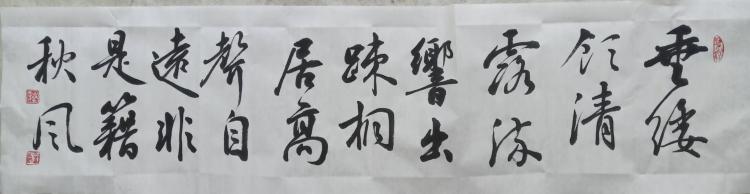 垂緌
飲清
露流
響出
踈桐
居高
聲自
遠非
是籍
秋风